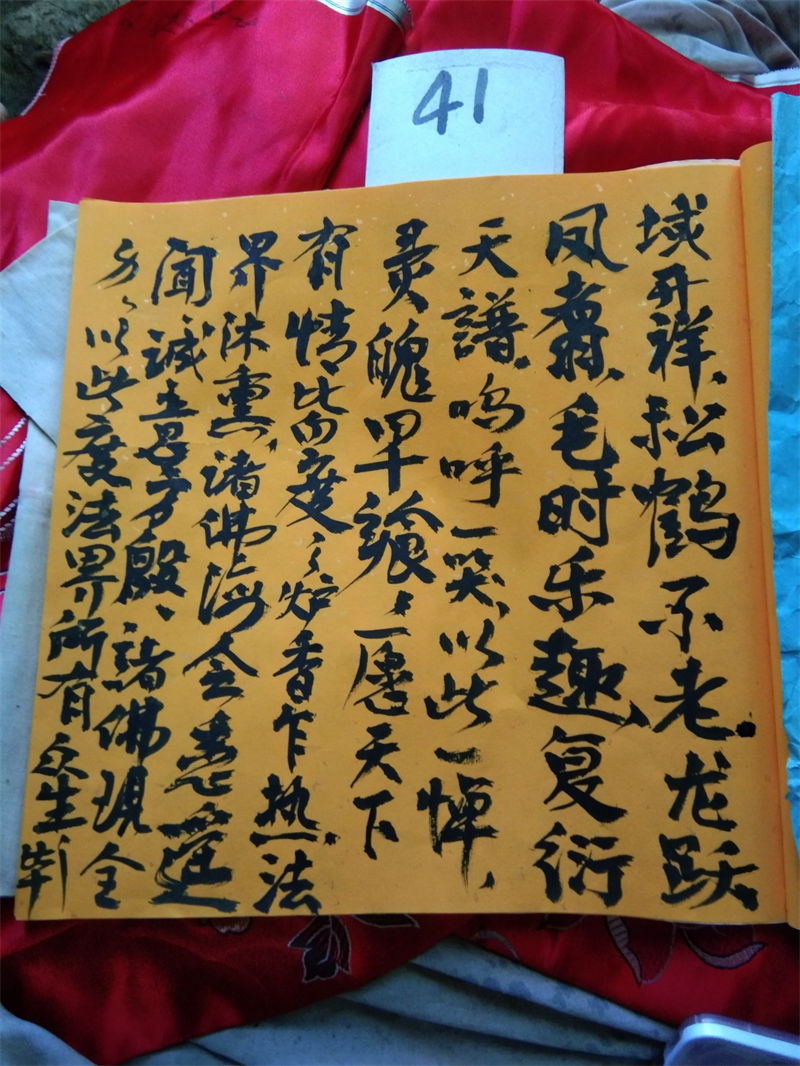 41
域开祥、松鹤不老、龙跃
凤翥、毛时乐趣、复衍
天谱。呜呼一笑、以此一悼、
灵魄早飨、一愿天下
有情皆度之炉香乍热、法
界沐熏、诸佛海会悉遥
闻、诚方殷、诸佛现全
以此度法界所有众生